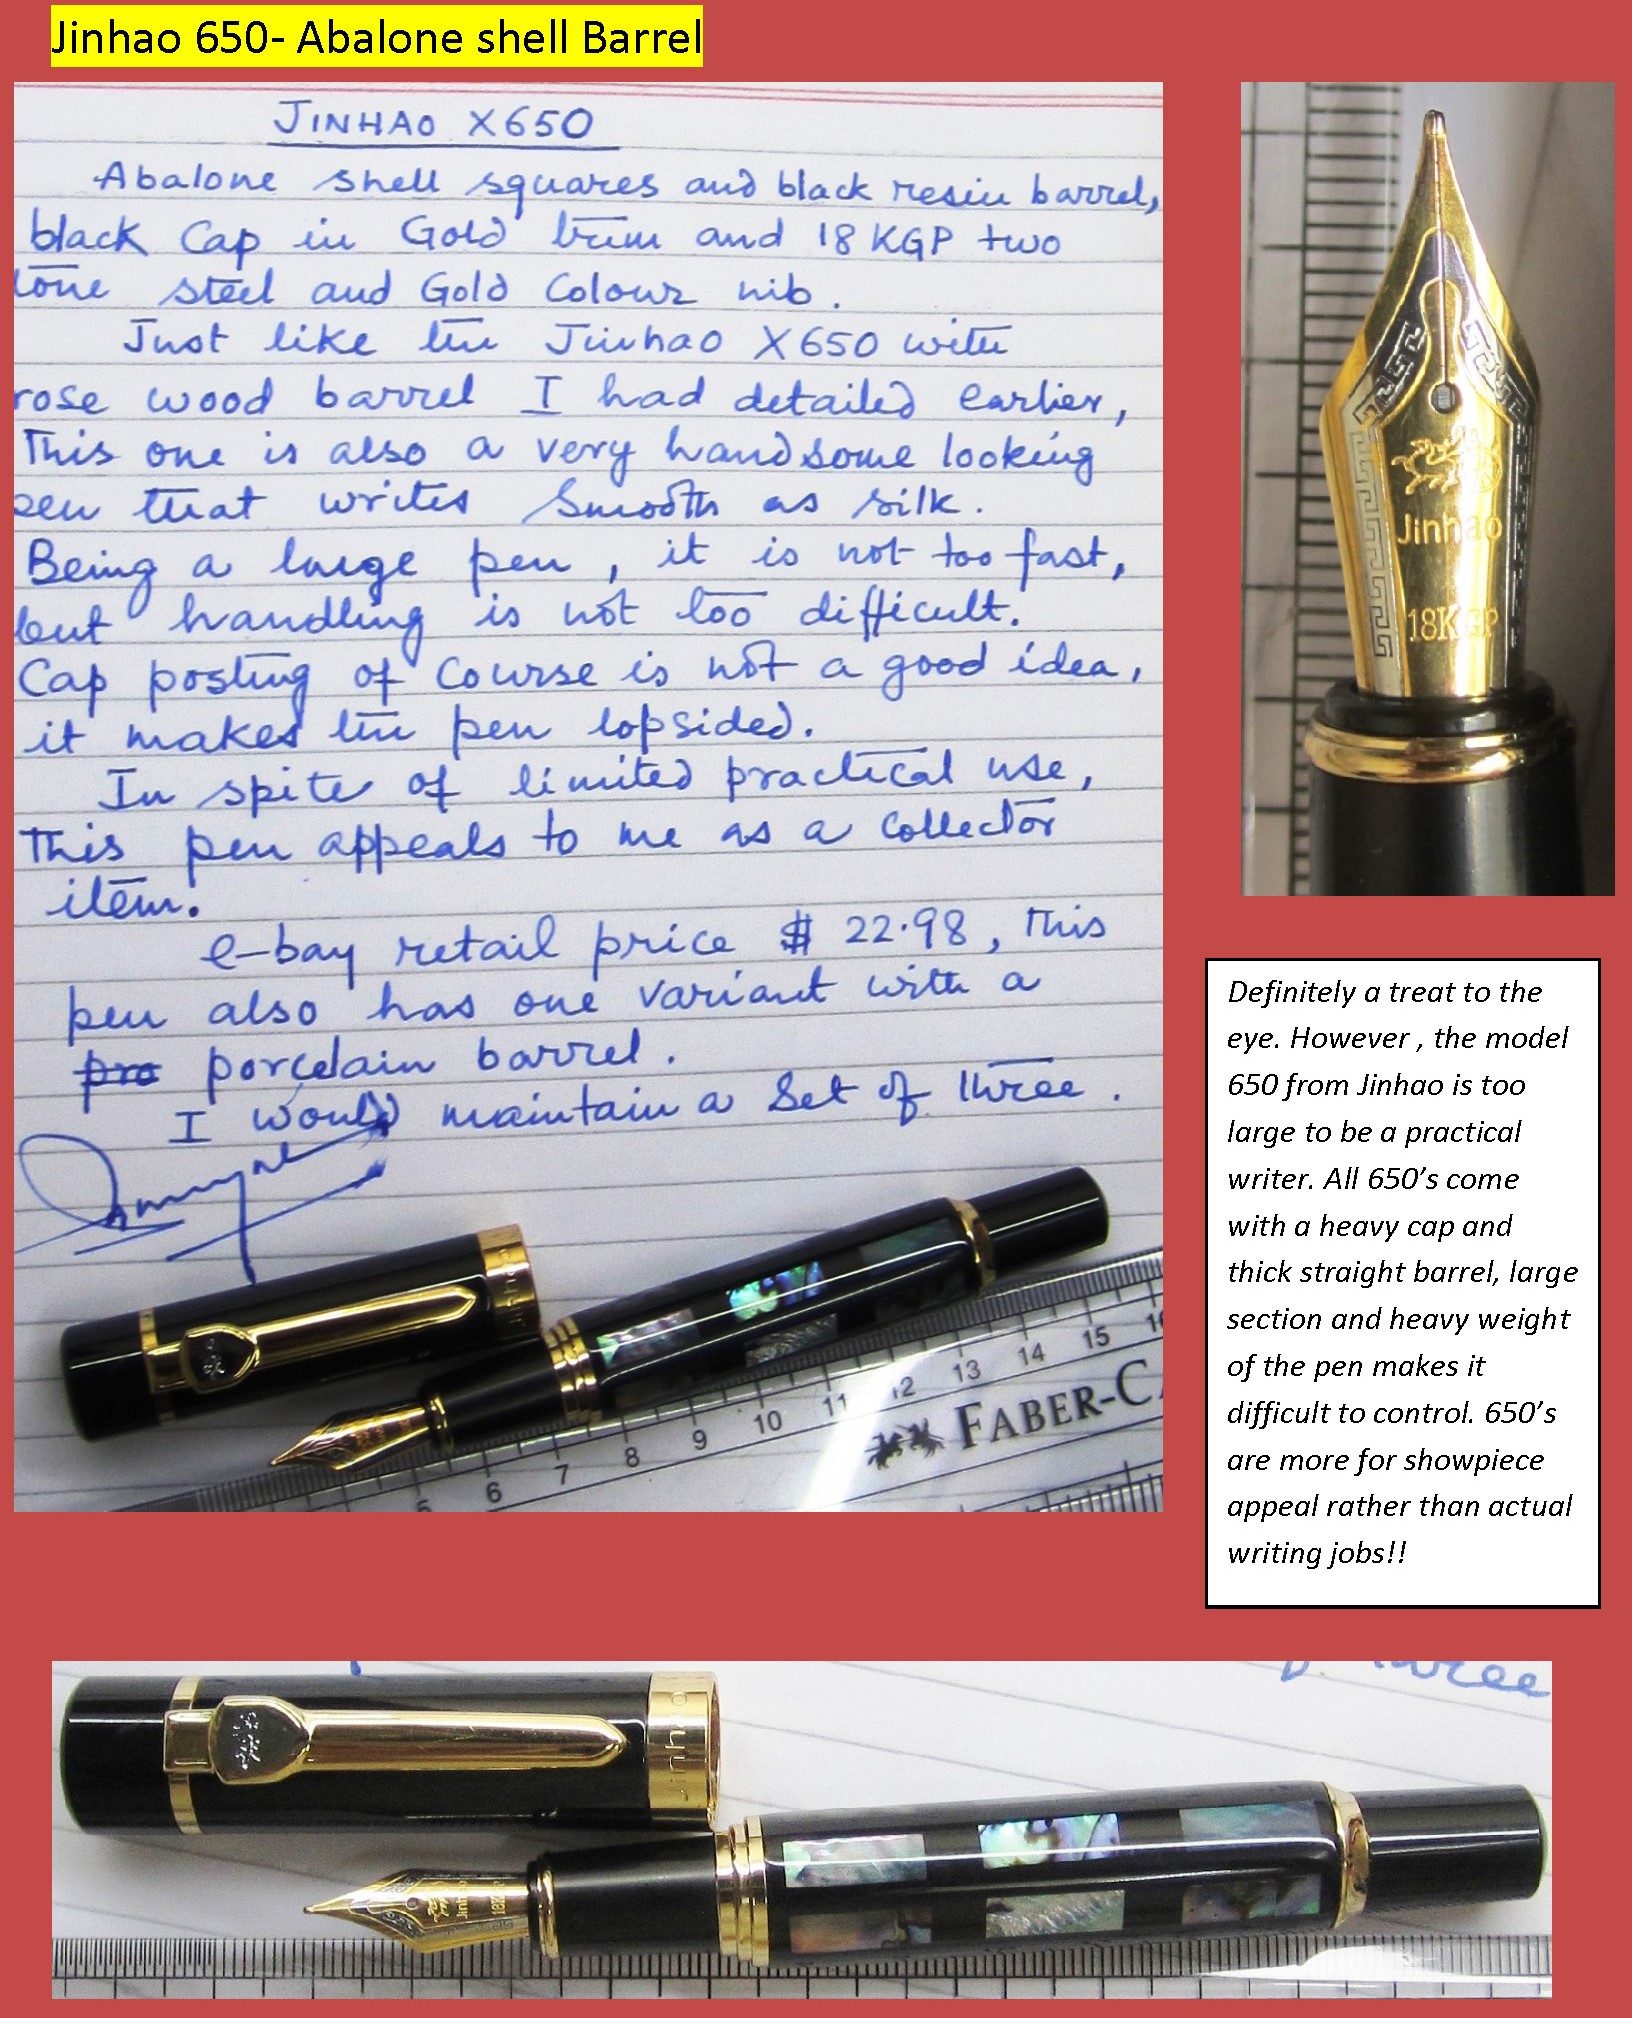 Jinhao 650- Abalone shell Barrel
JINHAO X650
Abalone shell squares and black resin barrel,
black Cap in Gold trim and 18 KGP two
tone steel and Gold Colour nib.
Just like the Jinhao X650 with
rose wood barrel I had detailed earlier,
This one is also a very handsome looking
pen that writes Smooth as silk.
Being a large pen, it is not too fast,
but handling is not too difficult.
Cap posting of Course is not a good idea,
it makes the pen lopsided.
In spite of limited practical use,
This pen appeals to me as a Collector
item.
e-bay retail price $ 22.98, This
pen also has one variant with a
pro porcelain barrel.
I would maintain a Set of three.
Jinhao
5 6 7 8 9 10 11 12 13 14 15 16
FABER-CA
Jinhao
18KGP
Definitely a treat to the
eye. However , the model
650 from Jinhao is too
large to be a practical
writer. All 650’s come
with a heavy cap and
thick straight barrel, large
section and heavy weight
of the pen makes it
difficult to control. 650’s
are more for showpiece
appeal rather than actual
writing jobs!!
three
Jinhao
Jinhao
18KGP